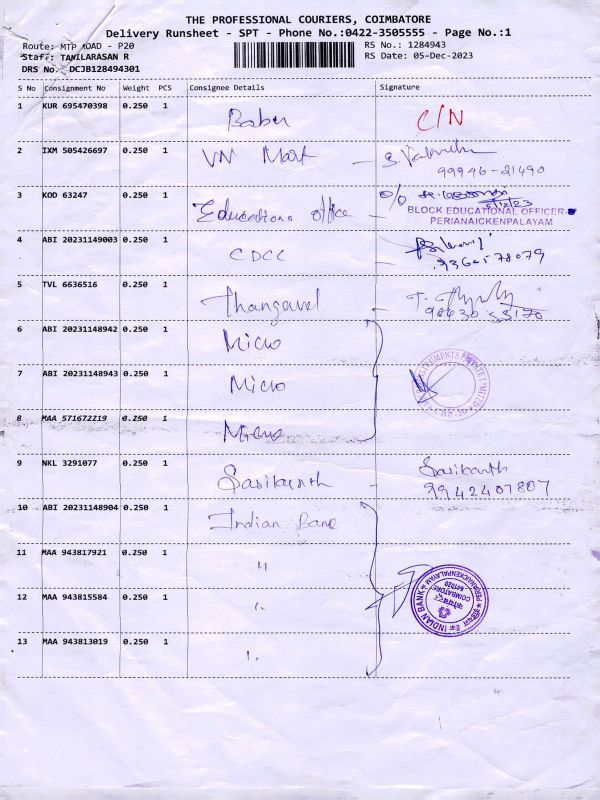 THE PROFESSIONAL COURIERS, COIMBATORE
Delivery Runsheet - SPT - Phone No.:0422-3505555 - Page No.:1
Route: MTP ROAD - P20
RS No.: 1284943
Staff: TAMILARASAN R
RS Date: 05-Dec-2023
DRS No.: DCJB128494301
S No Consignment No Weight PCS Consignee Details Signature
1 KUR 695470398 0.250 1 Babu C/N
2 IXM 505426697 0.250 1 VN Mart -
99946-21490
3 KOD 63247 0.250 1 Educationa office -
5/12/23
BLOCK EDUCATIONAL OFFICER
PERIANAICKENPALAYAM
4 ABI 20231149003 0.250 1 CDCC
5 TVL 6636516 0.250 1 Thangavel
6 ABI 20231148942 0.250 1 Micro
7 ABI 20231148943 0.250 1 Micro
8 MAA 571672219 0.250 1 Micro
9 NKL 3291077 0.250 1 Sasikanth - Sasikanth
9942407807
10 ABI 20231148904 0.250 1 Indian Bank
11 MAA 943817921 0.250 1 "
12 MAA 943815584 0.250 1 "
INDIAN BANK
PERIANAICKENPALAYAM
COIMBATORE
641020
13 MAA 943813019 0.250 1 "